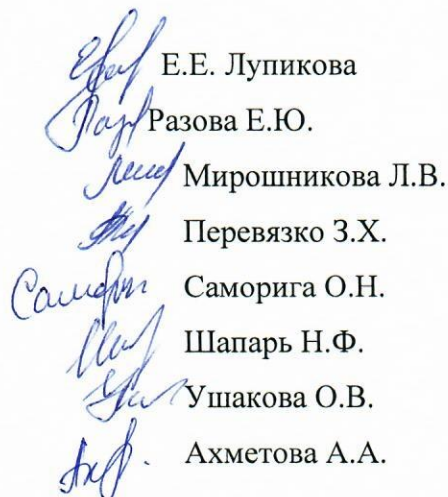 Е.Е. Лупикова
Разова Е.Ю.
Мирошникова Л.В.
Перевязко З.Х.
Саморига О.Н.
Шапарь Н.Ф.
Ушакова О.В.
Ахметова А.А.